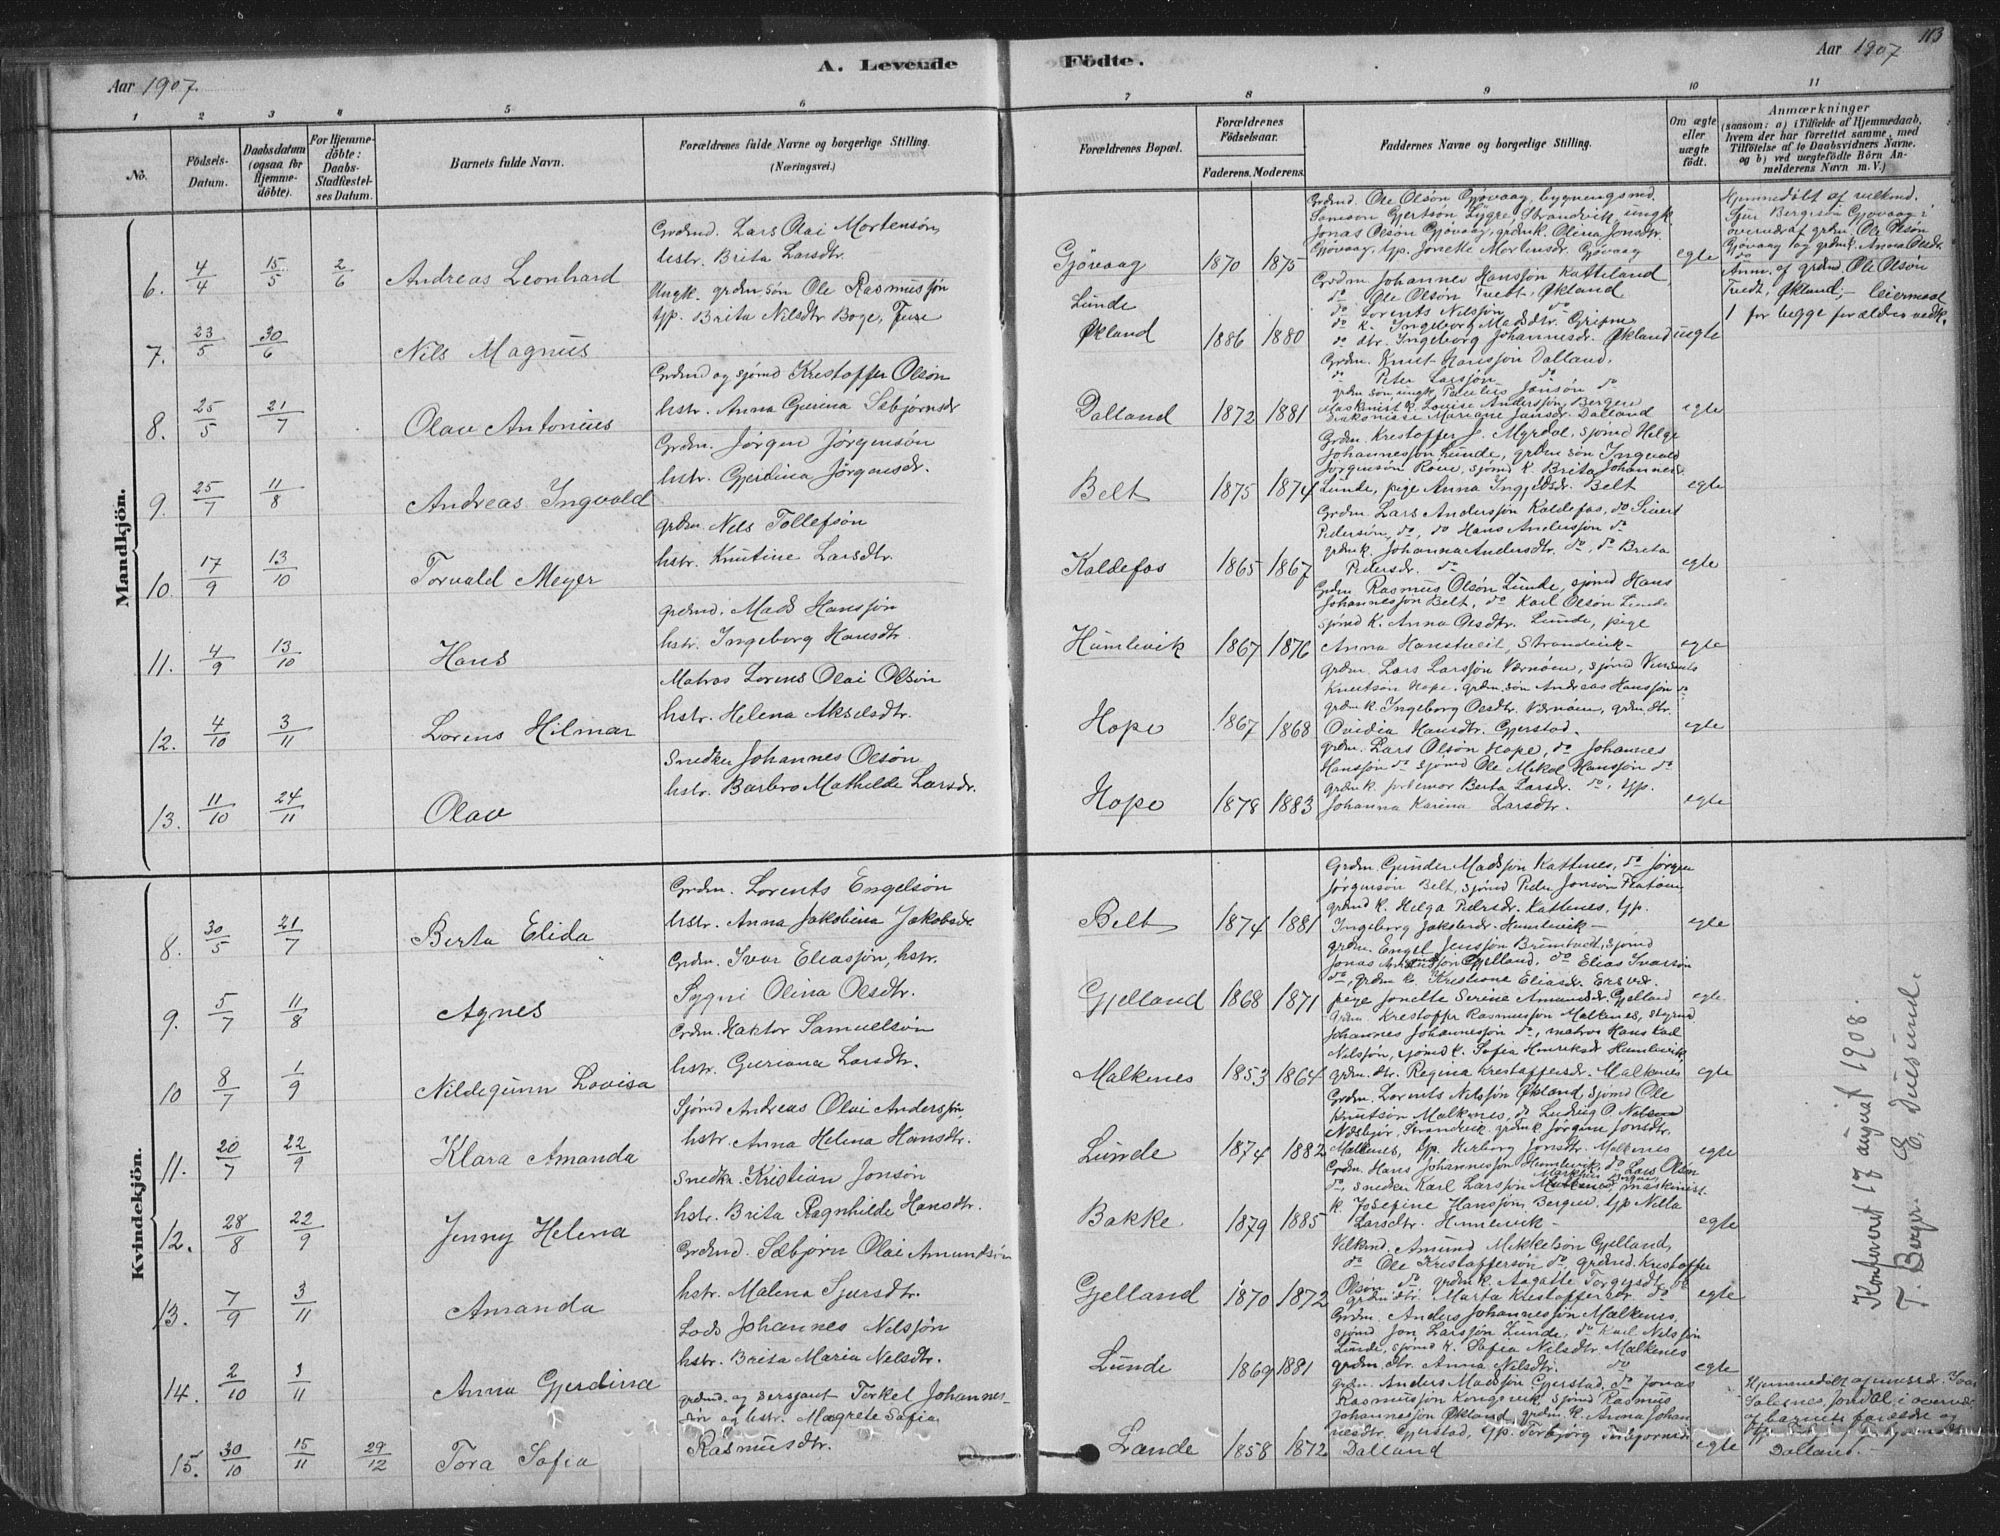 Aar 1907.
A. Levende
Födte.
Aar 1907
113
1 2 3 4 5 6 7 8 9 10 11
No.
Födsels-Datum.
Daabsdatum (ogsaa for Hjemmedöbte).
For Hjemmedöbte: Daabs-Stadfæstelses Datum.
Barnets fulde Navn.
Forældrenes fulde Navne og borgerlige Stilling. (Næringsvei.)
Forældrenes Bopæl.
Forældrenes Födselsaar.
Faderens. Moderens.
Faddernes Navne og borgerlige Stilling.
Om ægte eller uægte födt.
Anmærkninger
(saasom: a) i Tilfælde af Hjemmedaab, hvem der har forrettet samme, med Tilföielse af to Daabsvidners Navne, og b) ved uægtefödte Börn Anmelderens Navn m. V.)
Mandkjön.
6. 4/4 15/5 2/6 Andreas Leonhard
Grdmd. Lars Olai Mortensøn
hstr. Brita Larsdtr.
Gjövaag 1870 1875
Grdmd. Ole Olsøn Gjøvaag, bygningsmd.
Samson Gjertsøn Lygre, Strandvik, ungk.
Jonas Olsøn Gjøvaag, grdmk. Olina Jonsdtr.
Gjøvaag, typ. Jonette Mortensdr. Gjøvaag
egte
7. 23/5 30/6 Nils Magnus
Ungk. grdm søn Ole Rasmussjøn
typ. Brita Nilsdtr Boge, Fuse
Lunde
Økland 1886 1880
Grdm Johannes Hanssjøn Katteland
do Ole Olsøn Tvedt, Økland
do Lorents Nilsjøn do
do k. Ingeborg Madsdtr. Gripne
do dtr. Ingeborg Johannesdr. Økland
uegte
Anm. af grdmd Ole Olsøn
Tvedt, Økland, leiermaal
1 for begge forældres vedk.
8. 25/5 21/7 Olav Antonius
Grdmd og sjømd Kristoffer Olsøn
hstr. Anna Gurina Sæbjørnsdr
Dalland 1872 1881
Grdm. Knut Hanssjøn Dalland,
do Peter Larssjøn do
grdm søn ungk Paulus Jansøn do
Maskinist k. Louise Anderssjøn, Bergen
Diskonisse Mariane Jansdr. Dalland
egte
9. 25/7 11/8 Andreas Ingvald
Grdm. Jørgen Jørgensøn
hstr. Gjerdina Jørgensdr.
Belt 1875 1874
Grdm. Kristoffer J. Myrdal, sjømd Helge
Johannessjøn Lunde, grdm søn Ingvald
Jørgensøn Røen, sjømd k. Brita Johannesdr
Lunde, pige Anna Ingjeldsdr. Belt
egte
10. 17/9 13/10 Torvald Meyer
grdm. Nels Tollefsøn
hstr. Knutine Larsdtr.
Kaldefos 1865 1867
Grdm. Lars Anderssjøn Kaldefos, do Sivert
Pedersøn do, do Hans Andersøn do
grdmk. Johanna Andersdtr. do, do Brita
Pedersdr. do
egte
11. 4/9 13/10 Hans
grdmd. Mads Hanssjøn
hstr. Ingeborg Hansdtr
Humlevik 1867 1876
Grdm Rasmus Olsøn Lunde, sjømd Hans
Johannessjøn Belt, do Karl Olsøn Lunde
sjømd k. Anna Olsdtr. Lunde, pige
Anna Hanstveit, Strandvik
egte
12. 4/10 3/11 Lorens Hilmar
Matros Lorens Olai Olsøn
hstr. Helena Akselsdtr.
Hope 1867 1868
grdm. Lars Larssjøn Vernøen, sjømd Vinsents
Knutsøn Hope, grdm. søn Andreas Hanssjøn do
grdm k. Ingeborg Olsdtr. Vernøen, grdm. dtr.
Ovidia Hansdtr. Gjerstad.
egte
13. 11/10 24/11 Olav
Snedker Johannes Olsøn
hstr. Barbro Mathilde Larsdr.
Hope 1878 1883
grdm. Lars Olsøn Hope, do Johannes
Hanssjøn do sjømd Ole Mikal Hanssjøn do
grdm k. Berta Larsdr. do, typ.
Johanna Karina Larsdtr.
egte
Kvindekjön.
8. 30/5 21/7 Berta Elida
Grdm. Lorents Engelsøn
hstr. Anna Jakobina Jakobsdr.
Belt 1874 1881
Grdm Gunder Madssjøn Kattenes, do Jørgen
Jørgensøn Belt, sjømd Peder Jonsøn
grdmd k. Helga Pedersdr. Kattenes, typ.
Ingeborg Jakobsdr. Humlevik
egte
9. 5/7 11/8 Agnes
Grdm. Ivar Eliassjøn, hstr.
Sygni Olina Olsdtr.
Gjelland 1868 1871
grdm. Engel Jenssjøn Brimtvedt, sjømd
Jonas Gjelland, do Elias Ivarsøn
do, grdm k. Kristiane Eliasdr.
pige Jonette Serine Amundsdr Gjelland
egte
10 8/7 1/9 Nildegunn Lovisa
Grdm. Haktor Samuelsøn
hstr. Guriana Larsdtr.
Malkenes 1853 1864
Grdm. Kristoffr Rasmussjøn Malkenes, styrmd
Johannes Johannessjøn do, matros Hans Karl
Nilssjøn, sjømd k. Sofia Henriksdr Humlevik,
grdm. dtr. Regina Kristoffersdr. Malkenes
egte
11. 20/7 22/9 Klara Amanda
Sjømd Andreas Olai Anderssjøn
hstr. Anna Helena Hansdtr.
Lunde 1874 1882
Grdm. Lorents Nilssjøn Økland sjømd Ole
Knutsøn Malkenes, do Ludvig O. Nelson
Strandvik, grdmk Jørgine Jonsdtr.
Malkenes, typ. Herborg Jonsdtr. Malkenes
egte
12. 28/8 22/9 Jenny Helena
Snedkr. Kristian Jonsøn
hstr. Brita Ragnhilde Hansdtr.
Bakke 1879 1885
Grdm. Hans Johannessjøn Humlevik, do Lars Olsøn
do, snedker Karl Larssjøn maskinist
k. Josefine Hanssjøn, Bergen, typ Nilla
Larsdtr. Humlevik
egte
13. 7/9 3/11 Amanda
Grdmd. Sæbjørn Olai Amundsøn
hstr. Malena Sjursdtr.
Gjelland 1870 1872
Velkmd. Amund Mikkelsøn Gjelland,
do Ole Kristoffersøn do, grdmd. Kristoffer
Olsøn do grdmk. Aagatte Torgersdtr do
grdm. dtr. Marta Kristoffersdr. do
egte
14. 2/10 3/11 Anna Gjerdina
Lods Johannes Nilssjøn
hstr. Brita Maria Nelsdtr.
Lunde 1869 1881
Grdm. Anders Johannessjøn Malkenes,
sjømd Jon Larssjøn Lunde, do Karl Nilssjøn
Lunde, sjømd k. Sofia Nilsdtr Malkenes
grdm. dtr. Anna Nilsdtr. do
egte
15. 30/10 15/11 29/12 Tora Sofia
grdmd. og sersjant Torkel Johannes-
søn og hstr. Magrete Sofia
Rasmusdtr.
Lrande 1858 1872
grdm. Anders Madssjøn Gjerstad, do Jonas
Rasmussjøn Kongsvik, sjømd Rasmus
Johannessjøn Økland, grdm. k. Anna Johan
nesdtr. Gjerstad, typ. Torbjørg Torbjørnsdr
Dalland
egte
Konfereret 17 august 1908.
T. Berger E. Duesund